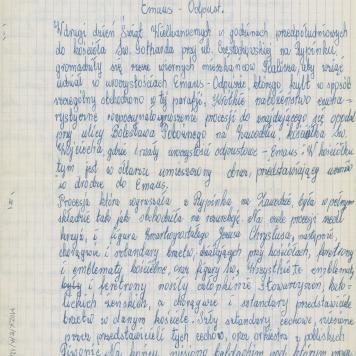 Emaus - Odpust.
W drugi dzień Świąt Wielkanocnych w godzinach przedpołudniowych
do kościoła św. Gotharda przy ul. Częstochowskiej na Rypinku,
gromadziły się rzesze wiernych mieszkańców Kalisza, aby wziąć
udział w uroczystościach Emaus - Odpustu którego kult w sposób
szczególny obchodzono w tej parafii. Krótkie nabożeństwo eucha-
rystyczne rozpoczynało wyruszenie procesji do znajdującego się opodal
przy ulicy Bolesława Pobożnego na Zawodziu, kościółka św.
Wojciecha, gdzie trwały uroczystości odpustowe - Emaus. W kościółku
tym jest w ołtarzu umieszczony obraz, przedstawiający uczniów
w drodze do Emaus.
Procesja która wyruszała z Rypinka na Zawodzie, była w pełnym
składzie tak jak obchodziła na rezurekcję. Na czele procesji niesli
krzyż, i figurę Zmartwychwstałego Jezusa Chrystusa, następnie,
chorągwie i sztandary bractw, działających przy kościołach, feretrony
i emblematy kościelne, oraz figury św. Wszystkie te emblematy
były i feretrony nosiły członkinie Stowarzyszeń kato-
lickich żeńskich, a chorągwie i sztandary przedstawiciele
bractw w danym kościele. Trzy sztandary cechowe niesione
przez przedstawicieli tych cechów, oraz orkiestra z pobliskich
niesiono baldachim pod którym